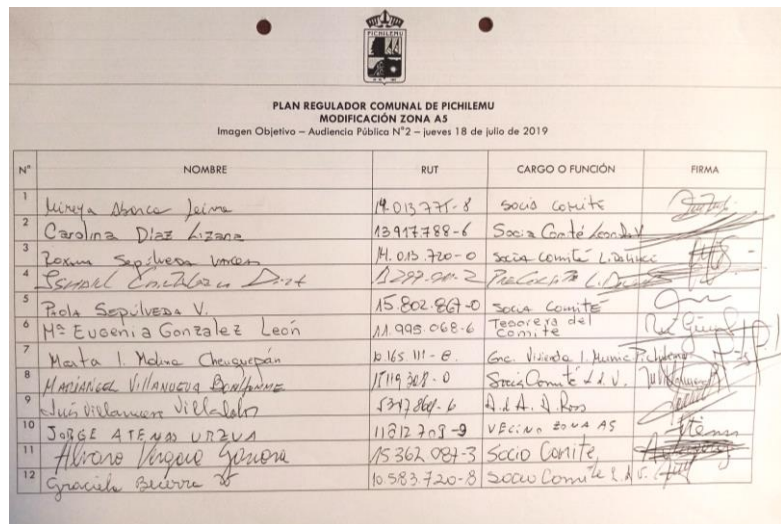 PICHILEMU
PLAN REGULADOR COMUNAL DE PICHILEMU
MODIFICACIÓN ZONA A5
Imagen Objetivo – Audiencia Pública N°2 – jueves 18 de julio de 2019
N° NOMBRE RUT CARGO O FUNCIÓN FIRMA
1 Mireya Abarca Leiva 14.013.775-8 socia comite
2 Carolina Díaz Lizana 13917788-6 Socia Comité
3 Roxana Sepúlveda 14.013.720-0 Socia comité
4
5 Paola Sepúlveda V. 15.802.867-0 Socia Comité
6 Mª Eugenia Gonzalez León 11.995.068-6 Tesorera del Comite
7 Marta I. Molina Cheuquepán 10.165.111- Enc. Vivienda I. Munic. Pichilemu
8 Mariangel Villanueva 308-0 Socia Comité L.d.V.
9 Luis Villanueva Villalobos A.d.A. A. Ross
10 JORGE ATENAS URZUA 11812709-9 VECINO ZONA A5
11 Alvaro Vergara 15362087-3 Socio Comite,
12 Graciela Becerra 10.583.720-8 Socio Comite L.d.V.